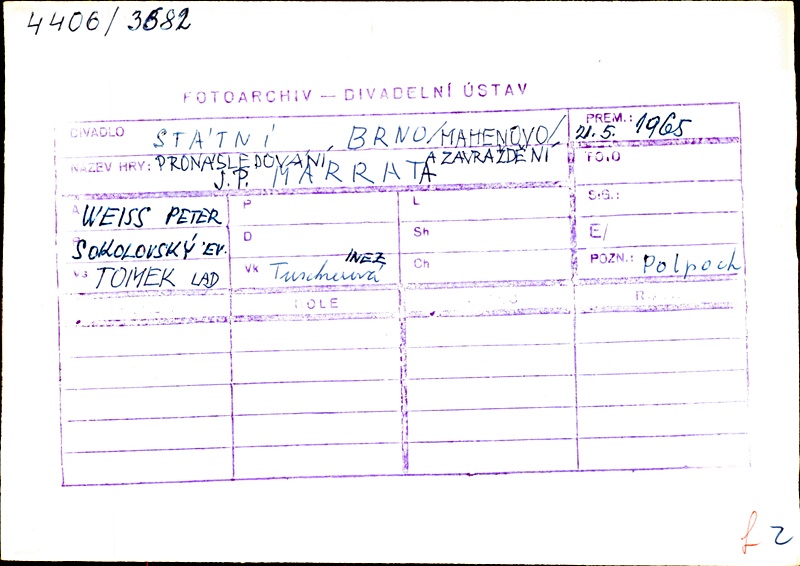 4406/3682
FOTOARCHIV — DIVADELNÍ ÚSTAV
DIVADLO STÁTNÍ, BRNO/MAHENOVO/ PREM.: 21.5. 1965
NÁZEV HRY: PRONÁSLEDOVÁNÍ A ZAVRAŽDĚNÍ FOTO
J.P. MARRATA
A WEISS PETER P L SIG.:
R SOKOLOVSKÝ EV. D Sh E/
Vs TOMEK LAD Vk Tuscherová INEZ Ch POZN.: Polpoch
ROLE R
2